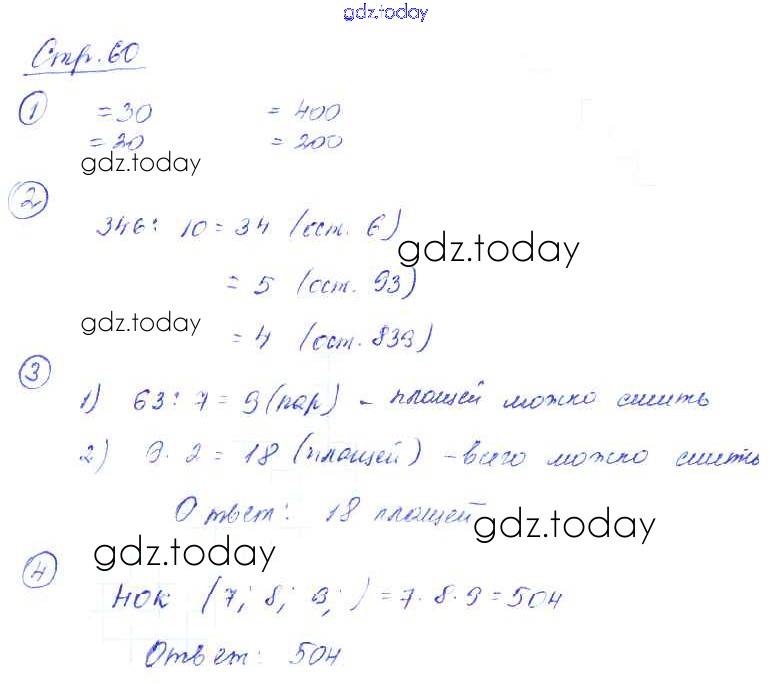 gdz.today
Стр. 60
1 = 30 = 400
= 20 = 200
gdz.today
2
346 : 10 = 34 (ост. 6)
gdz.today
= 5 (ост. 93)
gdz.today
= 4 (ост. 839)
3
1) 63 : 7 = 9 (пар) – плащей можно сшить
2) 9 · 2 = 18 (плащей) – всего можно сшить
Ответ: 18 плащей
gdz.today
gdz.today
4
НОК (7; 8; 9; ) = 7 · 8 · 9 = 504
Ответ: 504